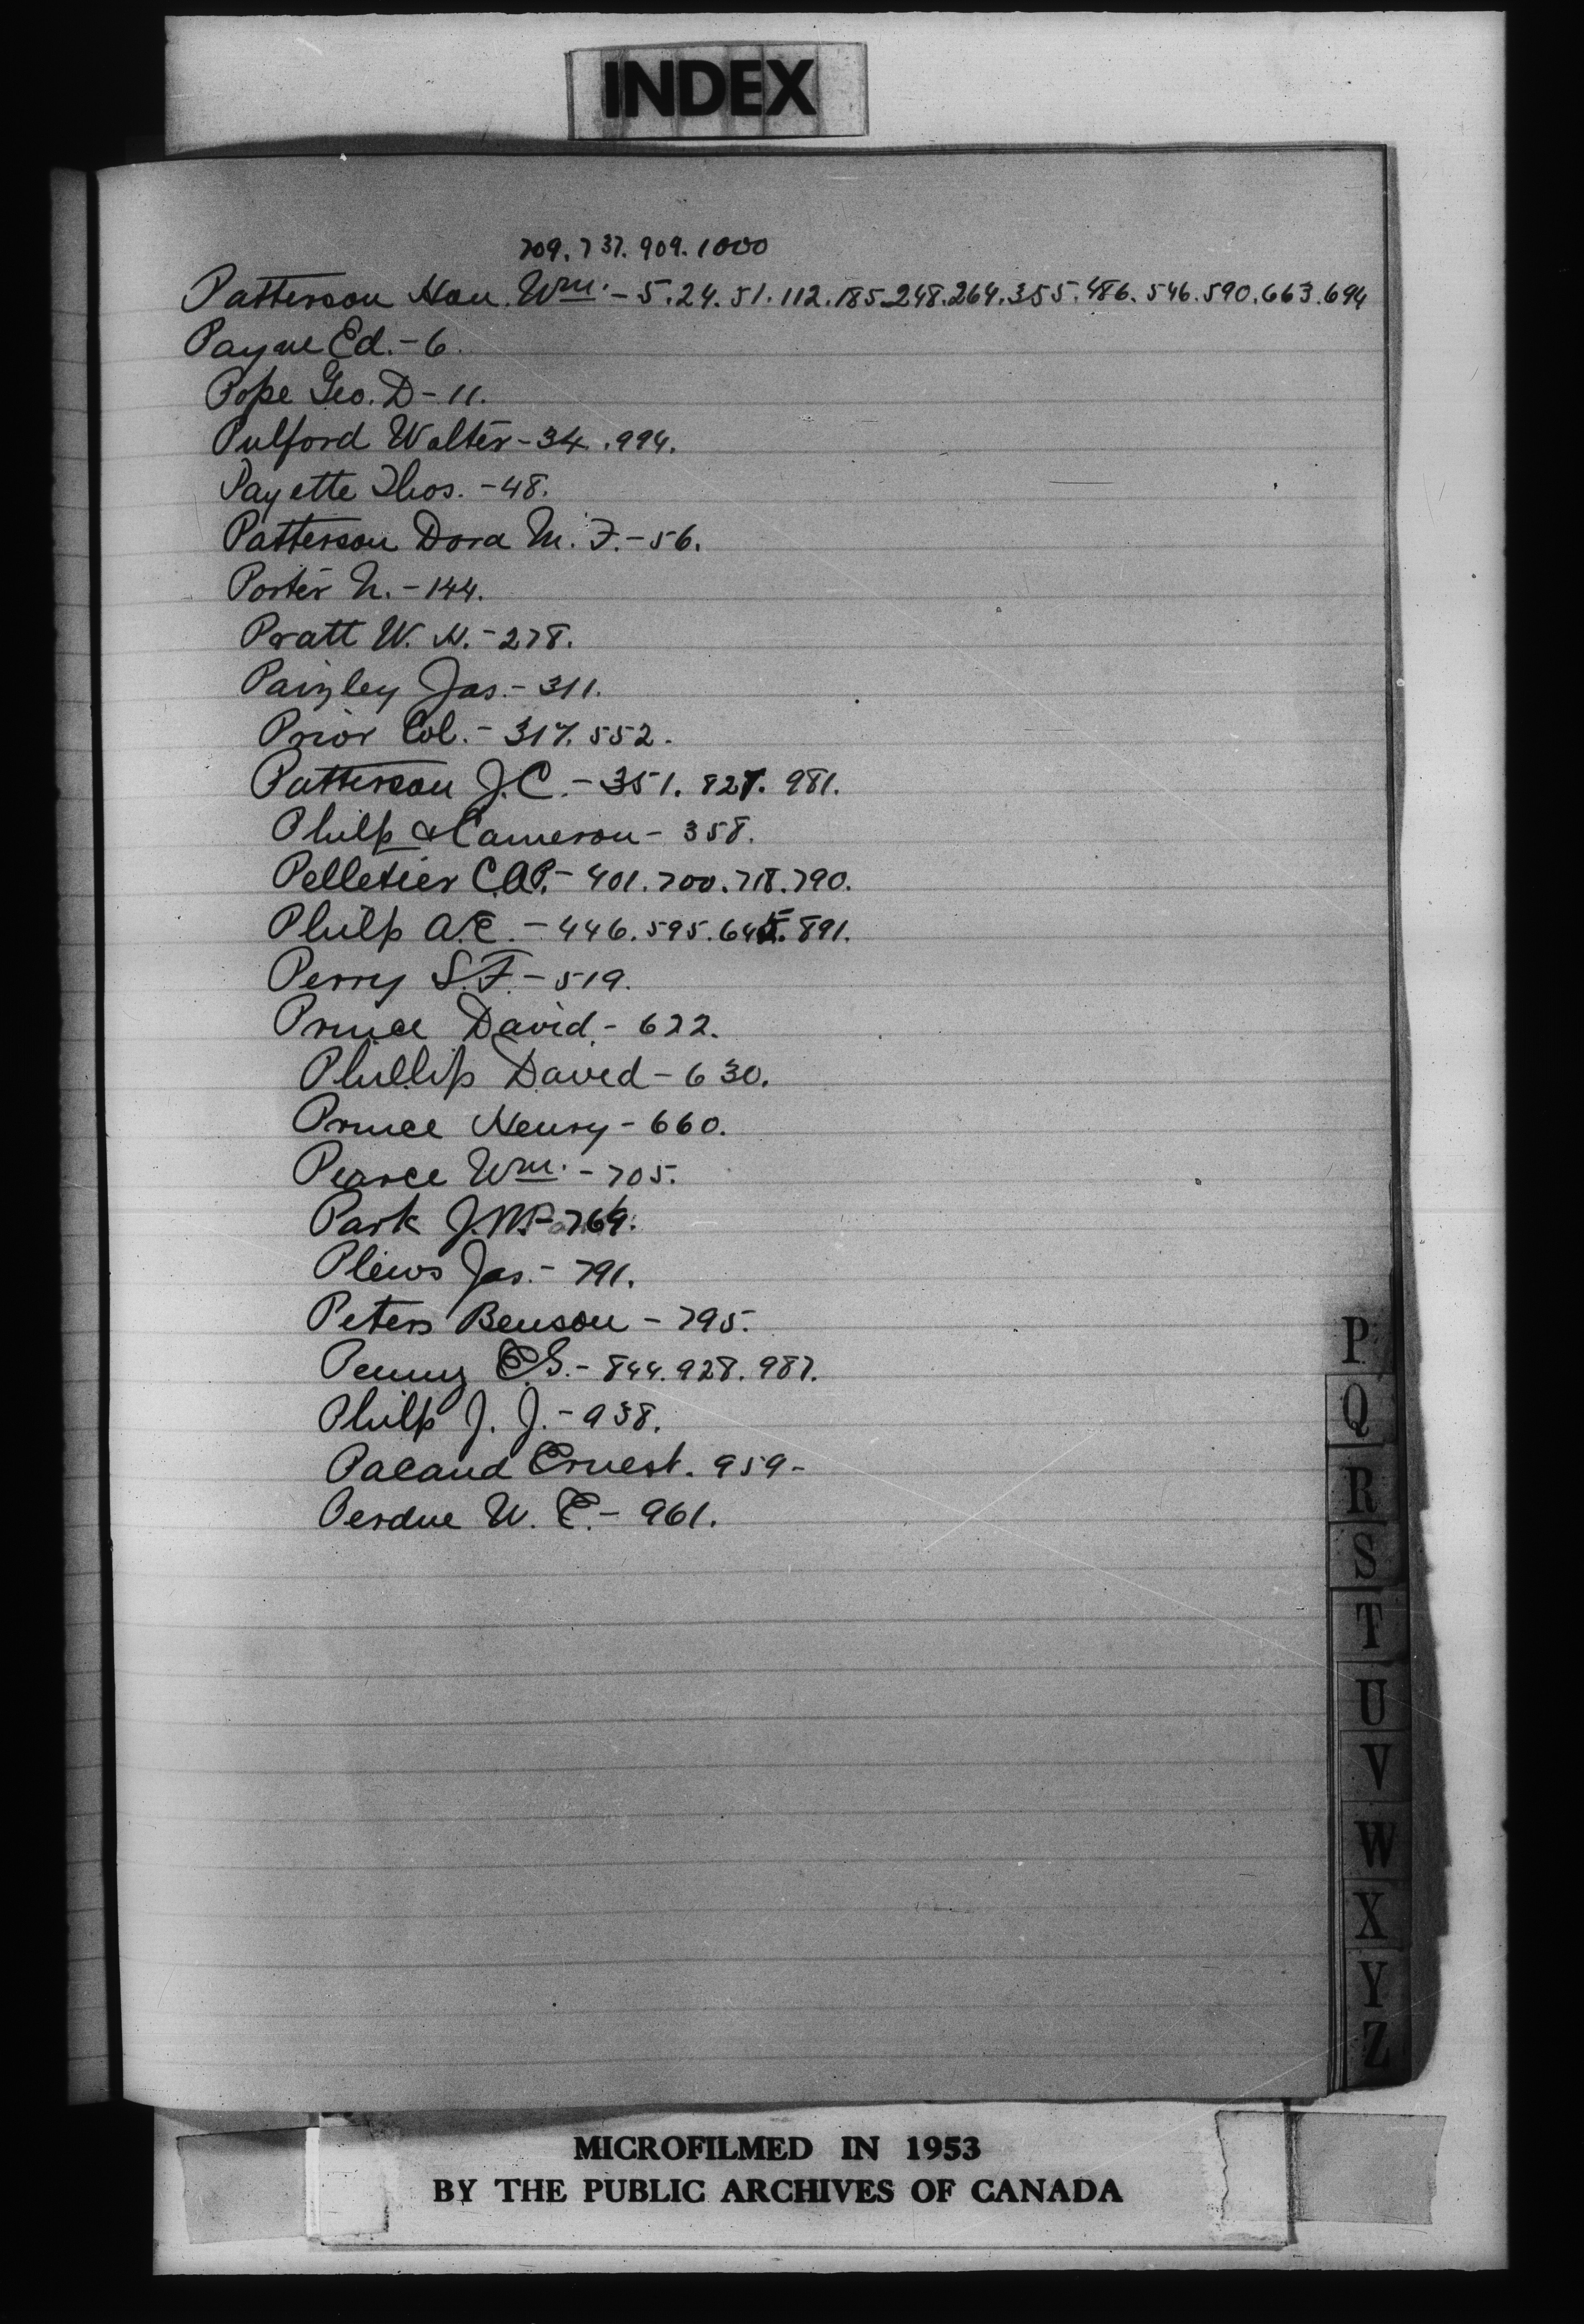 INDEX
709. 737. 909. 1000
Patterson Hon. Wm. - 5. 24. 51. 112. 185. 248. 264. 355. 486. 546. 590. 663. 694
Payne Ed. - 6.
Pope Geo. D - 11.
Pulford Walter - 34. 994.
Payette Thos. - 48.
Patterson Dora M. F. - 56.
Porter N. - 144.
Pratt W. H. - 278.
Paizley Jas. - 311.
Prior Col. - 317. 552.
Patterson J.C. - 351. 827. 981.
Philp & Cameron - 358.
Pelletier C.A.P. - 401. 700. 718. 790.
Philp A.E. - 446. 595. 645. 891.
Perry S.F. - 519.
Prince David. - 622.
Phillip David - 630.
Prince Henry - 660.
Pearce Wm. - 705.
Park J. - 769.
Plews Jas. - 791.
Peters Benson - 795.
Penny E.S. - 844. 928. 987.
Philp J. J. - 938.
Pacaud Ernest. 959 -
Perdue W. E. - 961.
P
Q
R
S
T
U
V
W
X
Y
Z
MICROFILMED IN 1953
BY THE PUBLIC ARCHIVES OF CANADA